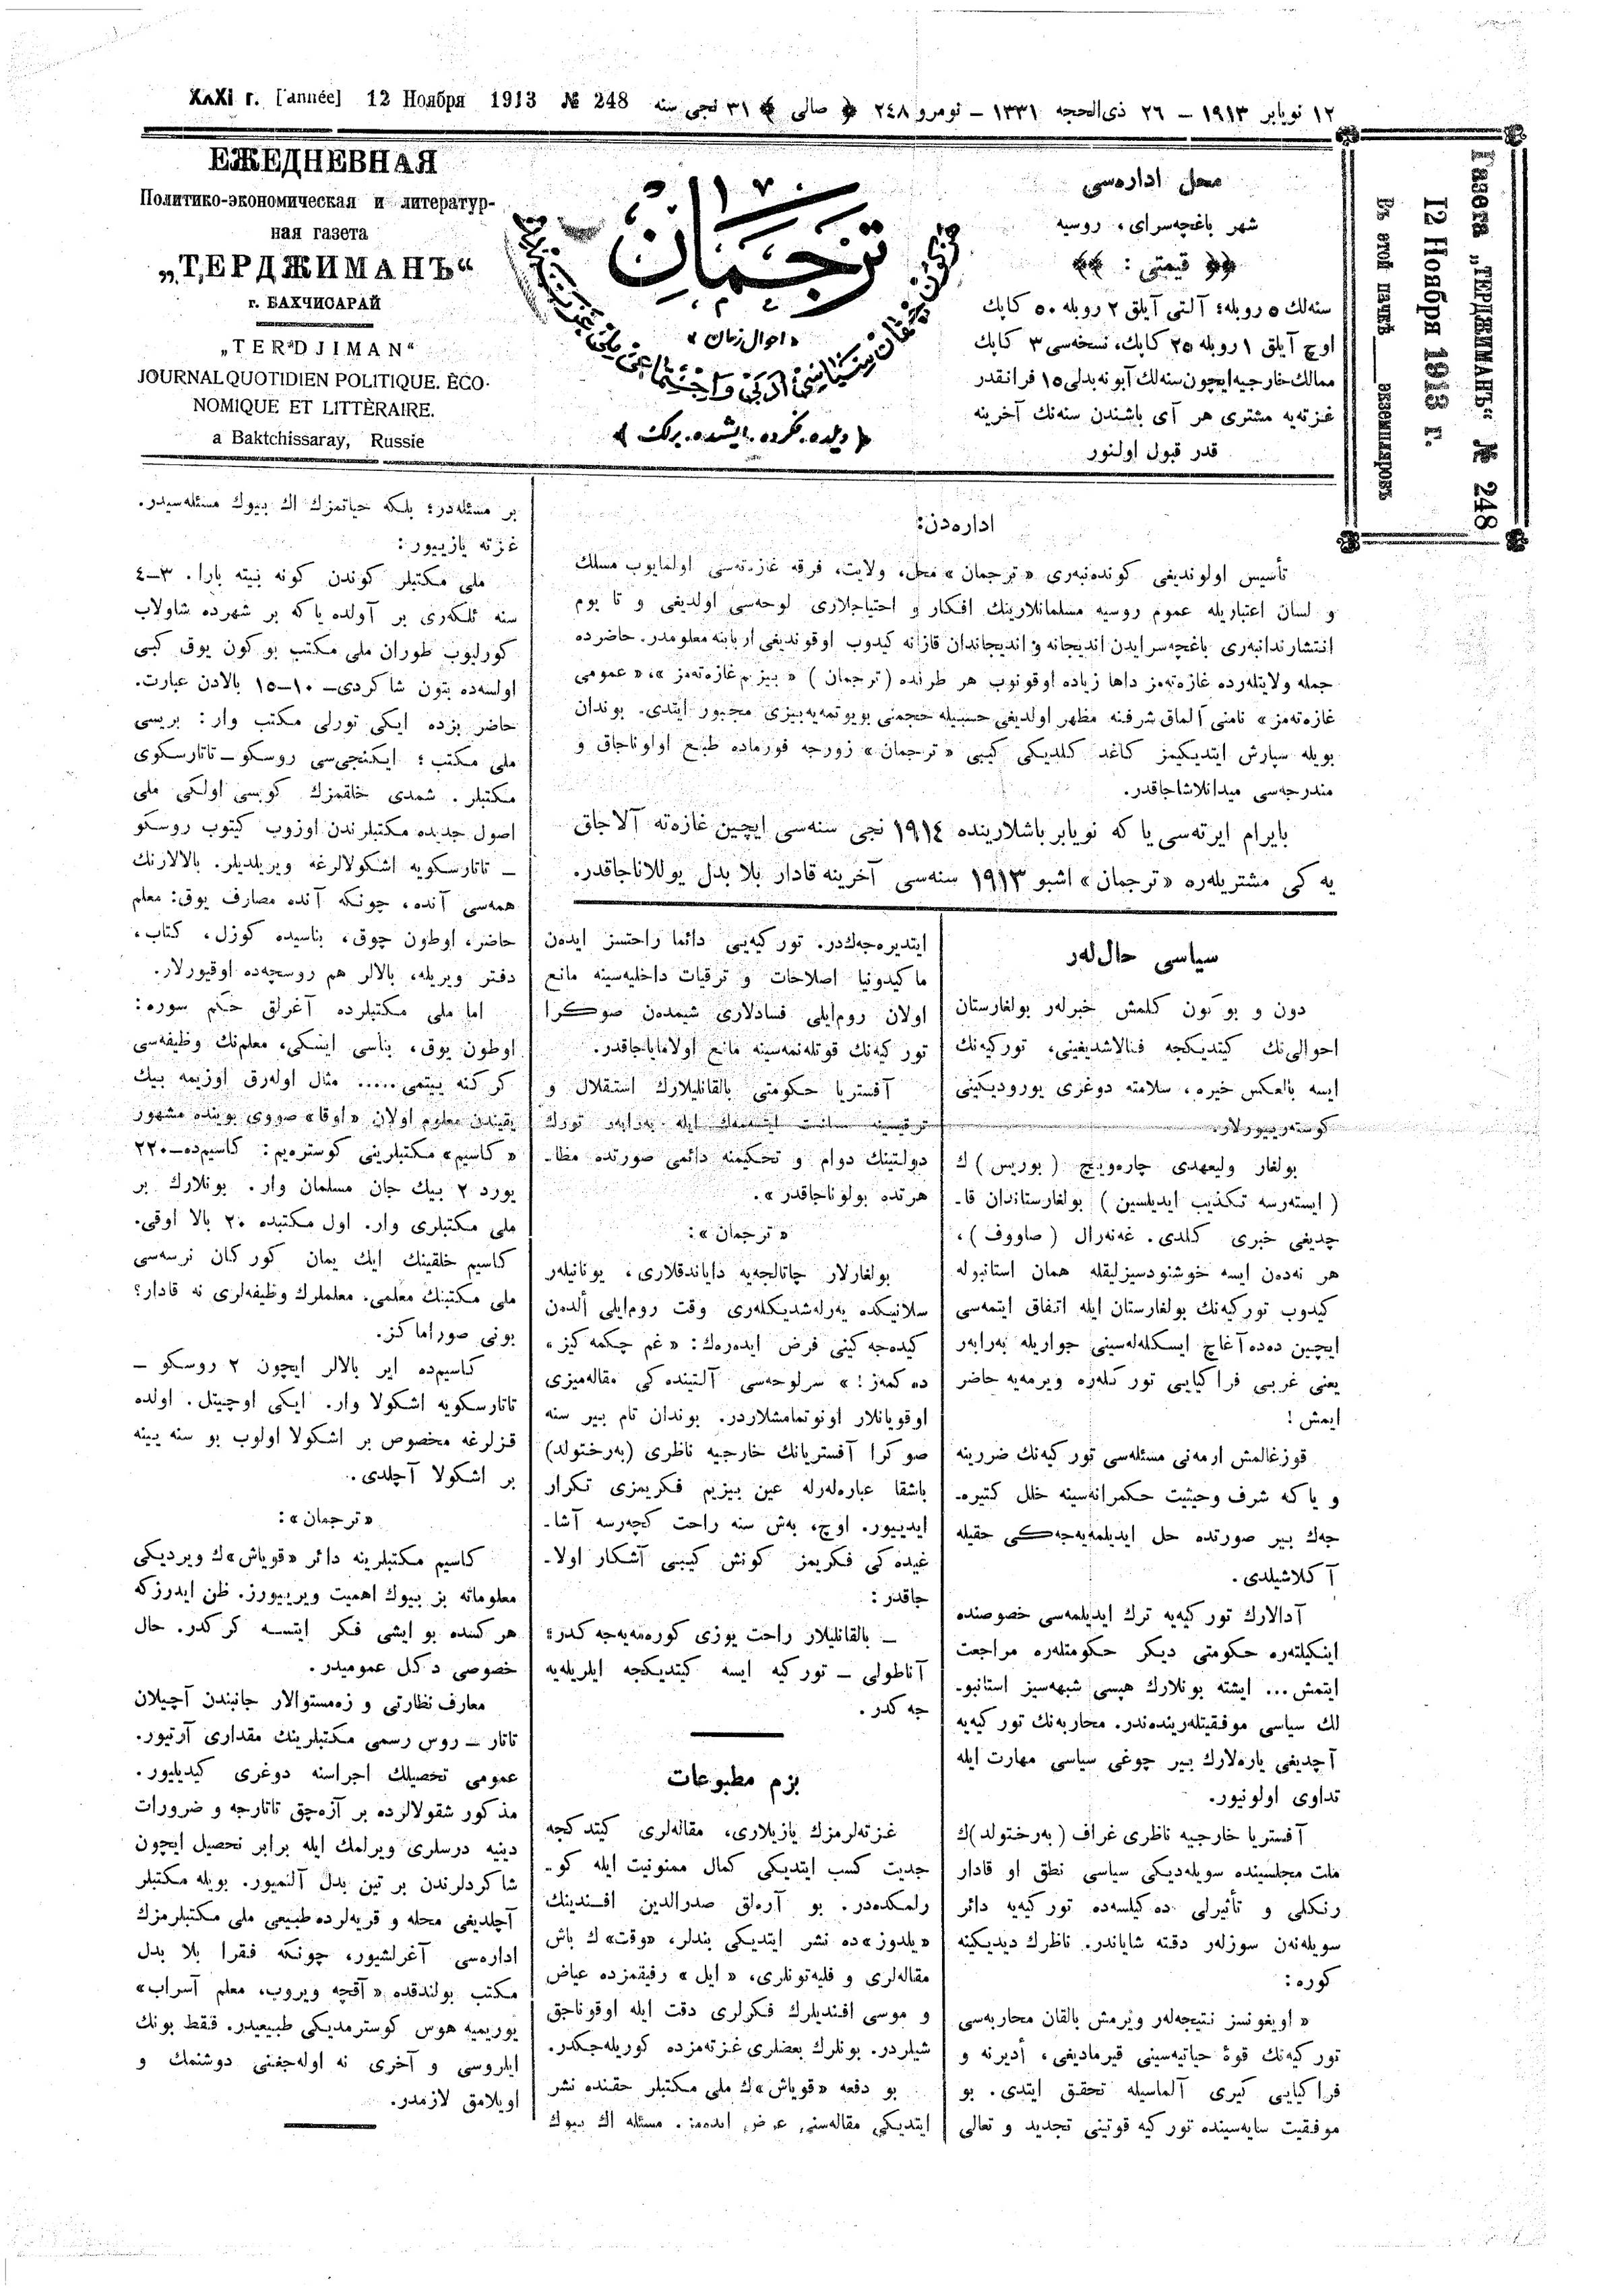 XXXI г. [année] 12 Ноября 1913 № 248
١٢ نویابر ١٩١٣ – ٢٦ ذی‌الحجه ١٣٣١ – نومرو ٢٤٨ ﴿ صالی ﴾ ٣١ نجی سنه
ЕЖЕДНЕВНАЯ
Политико-экономическая и литератур-
ная газета
„ТЕРДЖИМАНЪ“
г. БАХЧИСАРАЙ
„TERDJIMAN“
JOURNAL QUOTIDIEN POLITIQUE. ÈCO-
NOMIQUE ET LITTÈRAIRE.
a Baktchissaray, Russie
ترجمان
«احوال زمان»
﴿ دیلده، فكرده، ایشده، برلك ﴾
محل اداره‌سی
شهر باغچه‌سرای، روسیه
﴿﴿ قیمتی : ﴾﴾
سنه‌لك ٥ روبله؛ آلتی آیلق ٢ روبله ٥٠ كاپك
اوچ آیلق ١ روبله ٢٥ كاپك، نسخه‌سی ٣ كاپك
ممالك خارجیه ایچون سنه‌لك آبونه بدلی ١٥ فرانقدر
غزته‌یه مشتری هر آی باشندن سنه‌نك آخرینه
قدر قبول اولنور
Газета „ТЕРДЖИМАНЪ“ № 248
12 Ноября 1913 г.
Въ этой пачкѣ ____ экземпляровъ
اداره‌دن:
تأسیس اولوندیغی كونده‌نبه‌ری «ترجمان» محل، ولایت، فرقه غازه‌ته‌سی اولمایوب مسلك
و لسان اعتباریله عموم روسیه مسلمانلارینك افكار و احتیاجلاری لوحه‌سی اولدیغی و تا یوم
انتشارندانبه‌ری باغچه‌سرایدن اندیجانه و اندیجاندان قازانه كیدوب اوقوندیغی اربابنه معلومدر. حاضرده
جمله ولایتله‌رده غازه‌ته‌مز داها زیاده اوقونوب هر طرفده (ترجمان) «بیزیم غازه‌ته‌مز»، «عمومی
غازه‌ته‌مز» نامنی آلماق شرفنه مظهر اولدیغی حسبیله حجمنی بویوتمه‌یه بیزی مجبور ایتدی. بوندان
بویله سپارش ایتدیكیمز كاغد كلدیكی كیبی «ترجمان» زورجه فورماده طبع اولوناجاق و
مندرجه‌سی میدانلاشاجاقدر.
بایرام ایرته‌سی یا كه نویابر باشلارینده ١٩١٤ نجی سنه‌سی ایچین غازه‌ته آلاجاق
یه كی مشتریله‌ره «ترجمان» اشبو ١٩١٣ سنه‌سی آخرینه قادار بلا بدل یوللاناجاقدر.
سیاسی حال‌لەر
دون و بو كون كلمش خبرله‌ر بولغارستان
احوالی‌نك كیتدیكجه فنالاشدیغینی، توركیه‌نك
ایسه بالعكس خیره، سلامته دوغری یورودیكینی
كوسته‌رییورلار.
بولغار ولیعهدی چاره‌ویچ (بوریس)ك
(ایسته‌رسه تكذیب ایدیلسین) بولغارستاندان قا-
چدیغی خبری كلدی. غه‌نه‌رال (صاووف)،
هر نه‌دەن ایسه خوشنودسیزلیقله همان استانبوله
كیدوب توركیه‌نك بولغارستان ایله اتفاق ایتمه‌سی
ایچین ده‌ده آغاچ ایسكله‌له‌سینی جواریله به‌رابه‌ر
یعنی غربی فراكیایی توركله‌ره ویرمه‌یه حاضر
ایمش!
قوزغالمش ارمه‌نی مسئله‌سی توركیه‌نك ضررینه
و یاكه شرف وحیثیت حكمرانه‌سینه خلل كتیره-
جه‌ك بیر صورتده حل ایدیلمه‌یه‌جه‌كی حقیله
آكلاشیلدی.
آدالارك توركیه‌یه ترك ایدیلمه‌سی خصوصنده
اینكیلته‌ره حكومتی دیكر حكومتله‌ره مراجعت
ایتمش... ایشته بونلارك هپسی شبهه‌سیز استانبو-
لك سیاسی موفقیتله‌رینده‌ندر. محاربه‌نك توركیه‌یه
آچدیغی یاره‌لارك بیر چوغی سیاسی مهارت ایله
تداوی اولونیور.
آفستریا خارجیه ناظری غراف (به‌رختولد)ك
ملت مجلسینده سویله‌دیكی سیاسی نطق او قادار
رنكلی و تأثیرلی ده‌كیلسه‌ده توركیه‌یه دائر
سویله‌نه‌ن سوزله‌ر دقته شایاندر. ناظرك دیدیكینه
كوره:
«اویغونسز نتیجه‌له‌ر ویرمش بالقان محاربه‌سی
توركیه‌نك قوۀ حیاتیه‌سینی قیرمادیغی، أدیرنه و
فراكیایی كیری آلماسیله تحقق ایتدی. بو
موفقیت سایه‌سینده توركیه قوتینی تجدید و تعالی
ایتدیره‌جه‌كدر. توركیه‌یی دائما راحتسز ایدەن
ماكیدونیا اصلاحات و ترقیات داخلیه‌سینه مانع
اولان روم‌ایلی فسادلاری شیمدەن صوكرا
توركیه‌نك قوتله‌نمه‌سینه مانع اولامایاجاقدر.
آفستریا حكومتی بالقانلیلارك استقلال و
ترقیسینه سانت ایتمه‌ك ایله به‌رابه‌ر تورك
دولتینك دوام و تحكیمنه دائمی صورتده مظا-
هرتده بولوناجاقدر».
«ترجمان»:
بولغارلار چاتالجه‌یه دایاندقلاری، یونانیله‌ر
سلانیكده یه‌رله‌شدیكله‌ری وقت روم‌ایلی ألدەن
كیده‌جه‌كینی فرض ایده‌رەك: «غم چكمه‌كیز،
ده‌كمه‌ز!» سرلوحه‌سی آلتینده كی مقاله‌میزی
اوقویانلار اونوتمامشلاردر. بوندان تام بیر سنه
صوكرا آفستریانك خارجیه ناظری (به‌رختولد)
باشقا عباره‌له‌رله عین بیزیم فكریمزی تكرار
ایدییور. اوچ، به‌ش سنه راحت كچه‌رسه آشا-
غیده كی فكریمز كونش كیبی آشكار اولا-
جاقدر:
– بالقانلیلار راحت یوزی كوره‌مه‌یه‌جه‌كدر؛
آناطولی – توركیه ایسه كیتدیكجه ایلریله‌یه
جه‌كدر.
بزم مطبوعات
غزته‌لرمزك یازیلاری، مقاله‌لری كیتدكجه
جدیت كسب ایتدیكی كمال ممنونیت ایله كو-
رلمكده‌در. بو آره‌لق صدرالدین افندینك
«یلدوز»ده نشر ایتدیكی بندلر، «وقت»ك باش
مقاله‌لری و فلیه‌تونلری، «ایل» رفیقمزده عیاض
و موسی افندیلرك فكرلری دقت ایله اوقوناجق
شیلردر. بونلرك بعضلری غزته‌مزده كوریله‌جكدر.
بو دفعه «قویاش»ك ملی مكتبلر حقنده نشر
ایتدیكی مقاله‌سنی عرض ایده‌مز. مسئله اك بیوك
بر مسئله‌در؛ بلكه حیاتمزك اك بیوك مسئله‌سیدر.
غزته یازییور:
ملی مكتبلر كوندن كونه نیته بارا. ٣–٤
سنه ئلكه‌ری بر آولده یا كه بر شهرده شاولاب
كورلیوب طوران ملی مكتب بو كون یوق كبی
اولسه‌ده بتون شاكردی– ١٠–١٥ بالادن عبارت.
حاضر بزده ایكی تورلی مكتب وار: بریسی
ملی مكتب؛ ایكنجی‌سی روسكو–تاتارسكوی
مكتبلر. شمدی خلقمزك كوبسی اولكی ملی
اصول جدیده مكتبلرندن اوزوب كیتوب روسكو
– تاتارسكویه اشكولالرغه ویریلدیلر. بالالارنك
همه‌سی آنده، چونكه آنده مصارف یوق: معلم
حاضر، اوطون چوق، بناسیده كوزل، كتاب،
دفتر ویریله، بالالر هم روسچه‌ده اوقیورلار.
اما ملی مكتبلرده آغرلق حكم سوره:
اوطون یوق، بناسی ایسكی، معلم‌نك وظیفه‌سی
كركنه ییتمی..... مثال اوله‌رق اوزیمه بیك
یقیندن معلوم اولان «اوقا» صووی بوینده مشهور
«كاسیم» مكتبلرینی كوستره‌یم: كاسیم‌ده–٢٢٠
یورد ٢ بیك جان مسلمان وار. بونلارك بر
ملی مكتبلری وار. اول مكتبده ٢٠ بالا اوقی.
كاسیم خلقینك ایك یمان كوركان نرسه‌سی
ملی مكتبنك معلمی. معلملرك وظیفه‌لری نه قادار؟
بونی صوراماكز.
كاسیم‌ده ایر بالالر ایچون ٢ روسكو –
تاتارسكویه اشكولا وار. ایكی اوچیتل. اولده
قزلرغه مخصوص بر اشكولا اولوب بو سنه یینه
بر اشكولا آچلدی.
«ترجمان»:
كاسیم مكتبلرینه دائر «قویاش»ك ویردیكی
معلوماته بز بیوك اهمیت ویرییورز. ظن ایدرزكه
هركسده بو ایشی فكر ایتسه كركدر. حال
خصوصی دكل عمومیدر.
معارف نظارتی و زەمستوالار جانبندن آچیلان
تاتار – روس رسمی مكتبلرینك مقداری آرتیور.
عمومی تحصیلك اجراسنه دوغری كیدیلیور.
مذكور شقولالرده بر آزه‌چق تاتارجه و ضرورات
دینیه درسلری ویرلمك ایله برابر تحصیل ایچون
شاكردلرندن بر تین بدل آلنمیور. بویله مكتبلر
آچلدیغی محله و قریه‌لرده طبیعی ملی مكتبلرمزك
اداره‌سی آغرلشیور، چونكه فقرا بلا بدل
مكتب بولندقده «آقچه ویروب، معلم آسراب»
یوریمیه هوس كوسترمدیكی طبیعیدر. فقط بونك
ایلروسی و آخری نه اوله‌جغنی دوشنمك و
اویلامق لازمدر.